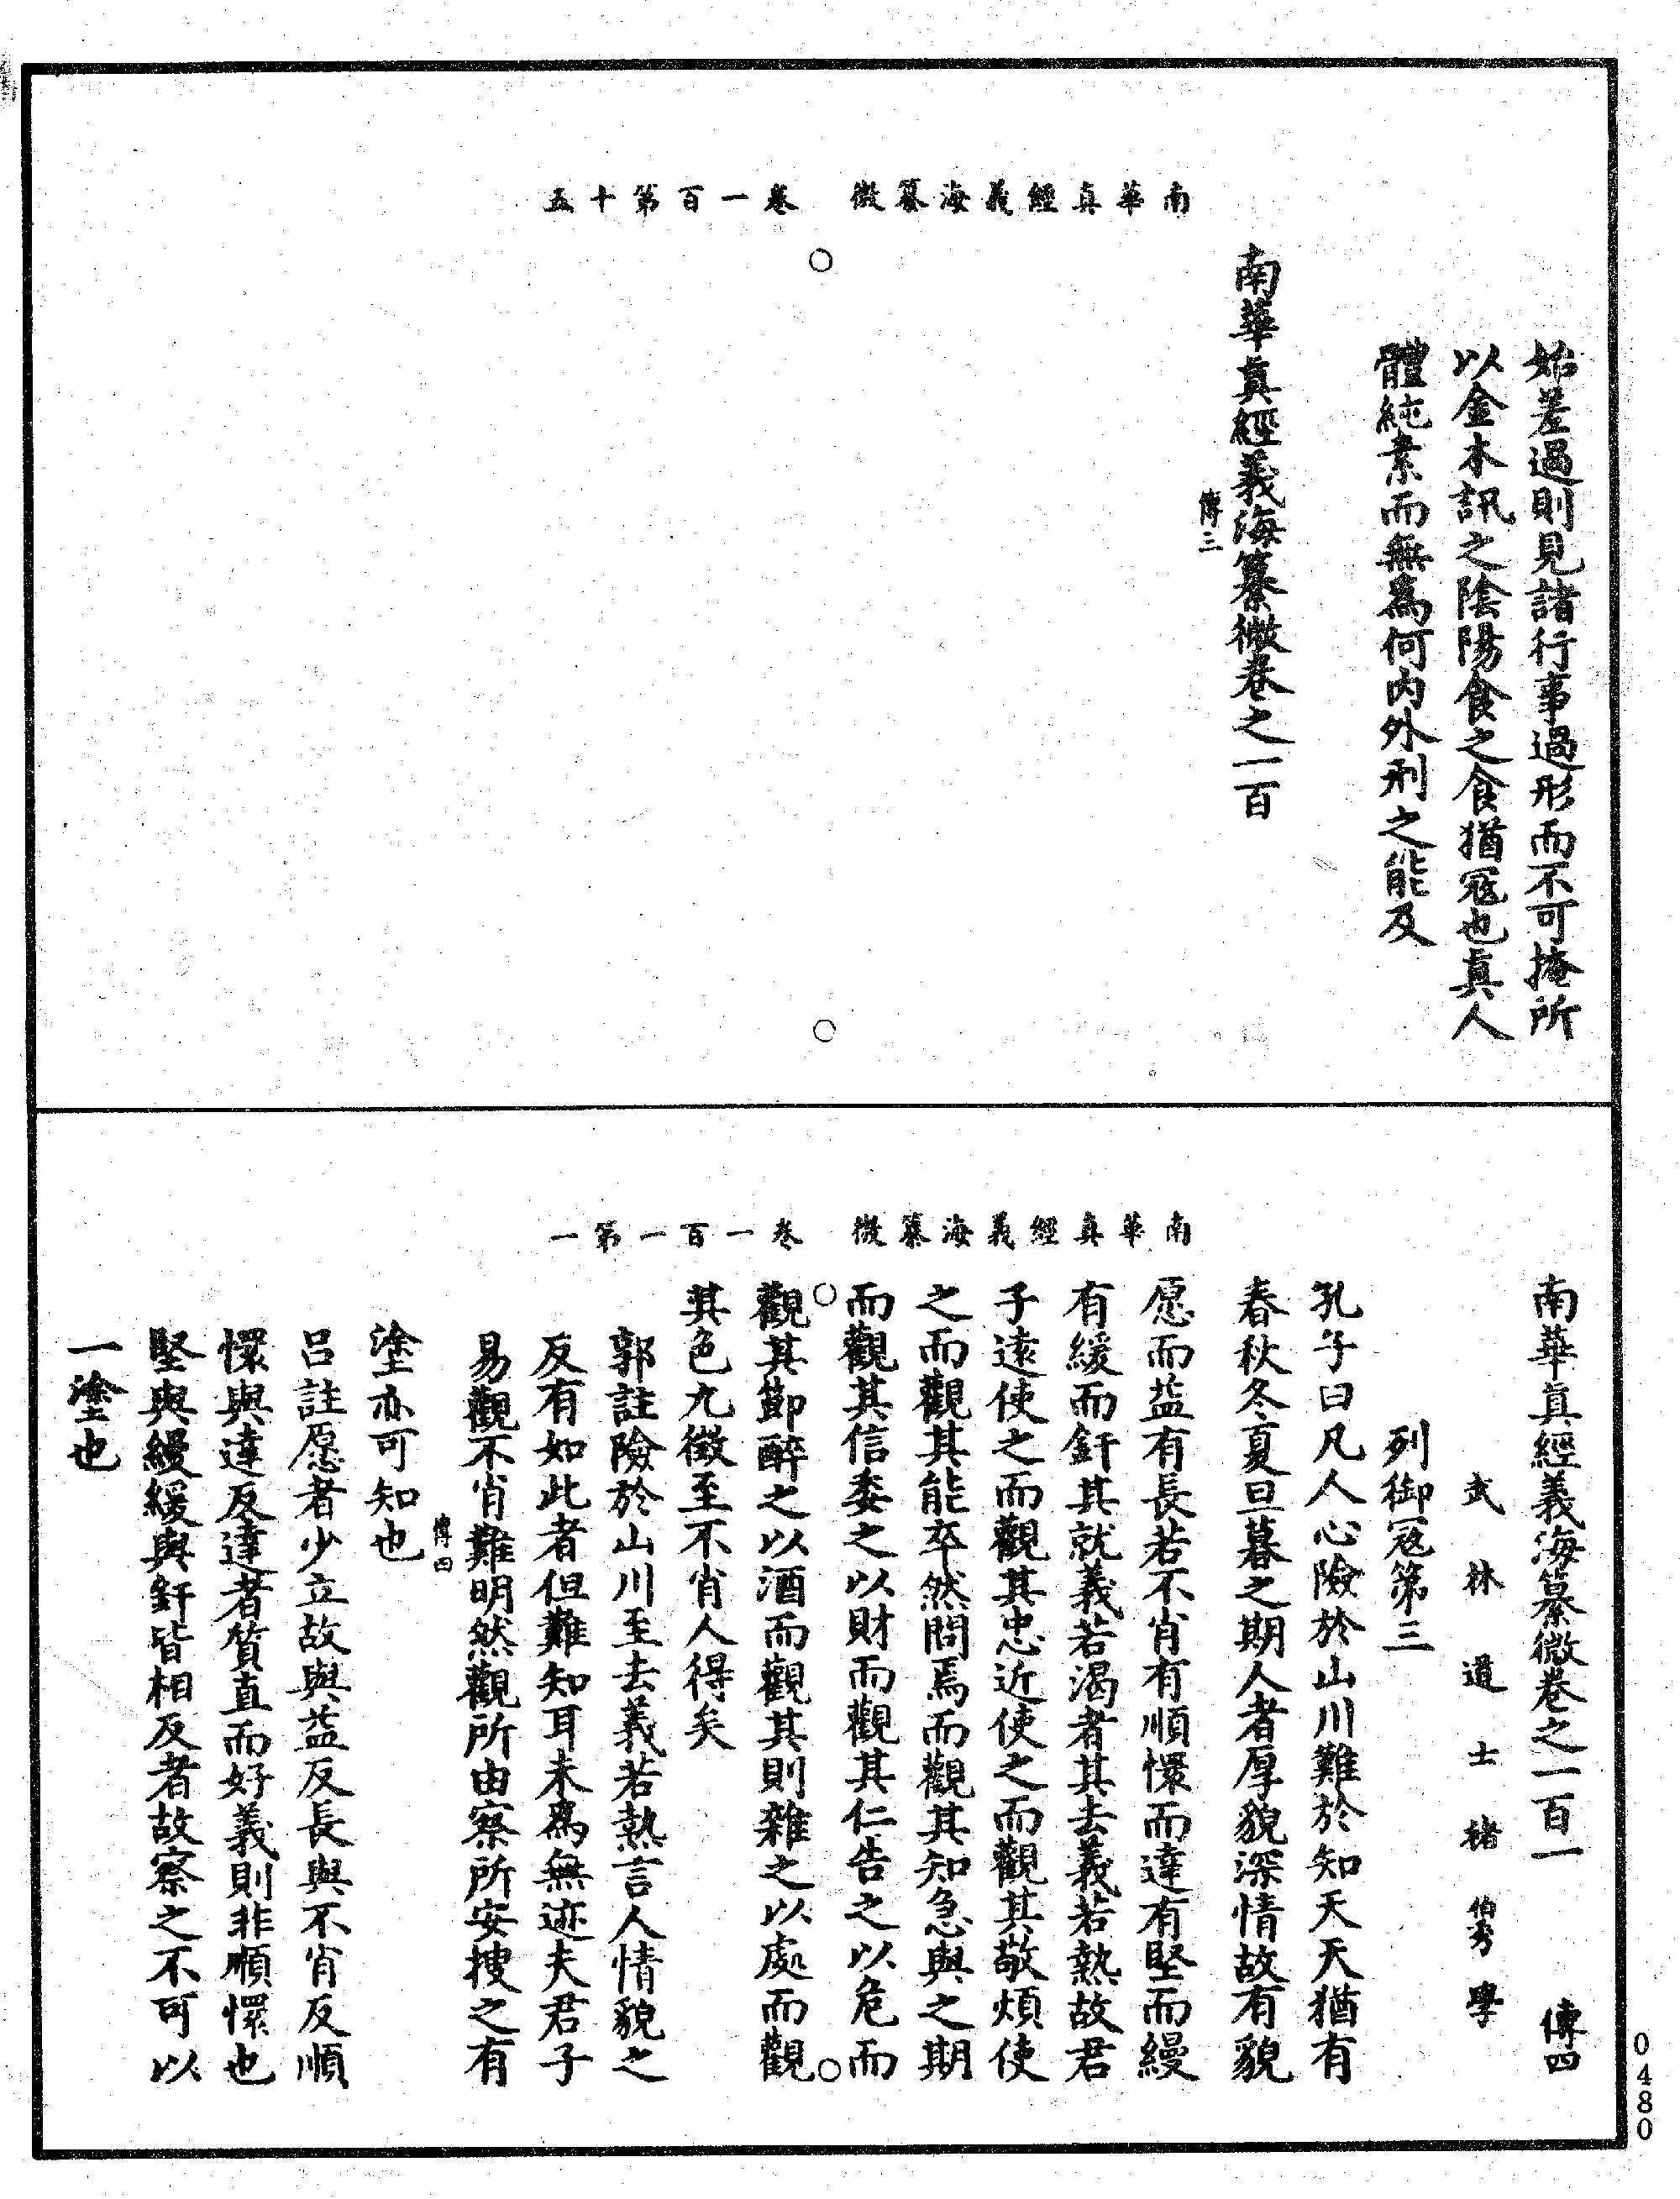 南華真經義海纂微 卷一百第十五
始差過則見諸行事過形而不可掩所
以金木訊之陰陽食之食猶寇也真人
體純素而無為何內外刑之能及
南華真經義海纂微卷之一百
傳三
南華真經義海纂微 卷一百一第一
南華真經義海纂微卷之一百一 傳四
武林道士褚伯秀學
列御寇第三
孔子曰凡人心險於山川難於知天天猶有
春秋冬夏旦暮之期人者厚貌深情故有貌
愿而益有長若不肖有順懁而達有堅而縵
有緩而釬其就義若渴者其去義若熱故君
子遠使之而觀其忠近使之而觀其敬煩使
之而觀其能卒然問焉而觀其知急與之期
而觀其信委之以財而觀其仁告之以危而
觀其節醉之以酒而觀其則雜之以處而觀
其色九徵至不肖人得矣
郭註險於山川至去義若熱言人情貌之
反有如此者但難知耳未為無迹夫君子
易觀不肖難明然觀所由察所安搜之有
傳四
塗亦可知也
呂註愿者少立故與益反長與不肖反順
懁與達反達者質直而好義則非順懁也
堅與縵緩與釬皆相反者故察之不可以
一塗也
0480